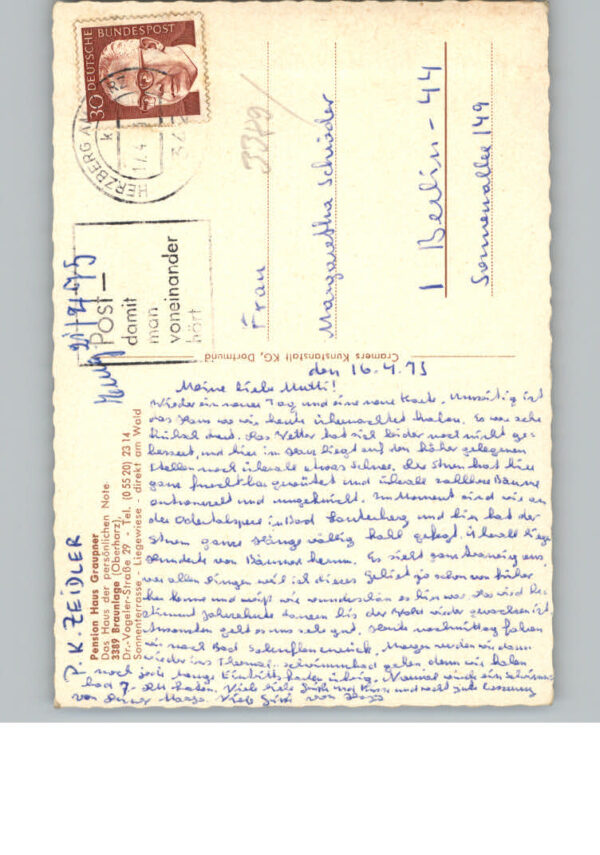 30 DEUTSCHE BUNDESPOST
HERZBERG AM
17.4.
342
Post –
damit
man
voneinander
hört
3389
Frau
Margaretha Schröder
1 Berlin - 44
Sonnenallee 149
Cramers Kunstanstalt KG, Dortmund
P. K. ZEIDLER
Pension Haus Graupner
Das Haus der persönlichen Note
3389 Braunlage (Oberharz),
Dr.-Vogeler-Straße 29 - Tel. (0 55 20) 23 14
Sonnenterrasse - Liegewiese - direkt am Wald
den 16.4.73
Meine liebe Mutti!
Wieder ein neuer Tag und eine neue Karte. Umseitig ist
das Haus wo wir heute übernachtet haben. Es war sehr
hübsch dort. Das Wetter hat sich leider noch nicht ge-
bessert, und hier im Harz liegt auf den höher gelegenen
Stellen noch überall etwas Schnee. Der Sturm hat hier
ganz furchtbar gewütet und überall zahllose Bäume
entwurzelt und umgeknickt. Im Moment sind wir an
der Odertalsperre in Bad Lauterberg und hier hat der
Sturm ganze Hänge völlig kahl gefegt. Überall liegen
Hunderte von Bäumen herum. Es sieht ganz traurig aus,
vor allen Dingen weil ich dieses Gebiet ja schon von früher
her kenne und weiß wie wunderschön es hier war. Es wird be-
stimmt Jahrzehnte dauern bis der Wald wieder gewachsen ist.
Ansonsten geht es uns sehr gut. Heute nachmittag fahren
wir nach Bad zurück. Morgen werden wir dann
wieder ins Thermal-schwimmbad gehen, denn wir haben
noch jede Menge Eintrittskarten übrig. Normal würde ein Schwimm-
bad 7.- DM kosten. Viele liebe Grüße und und recht gute Besserung
von Deiner Viele Grüße von